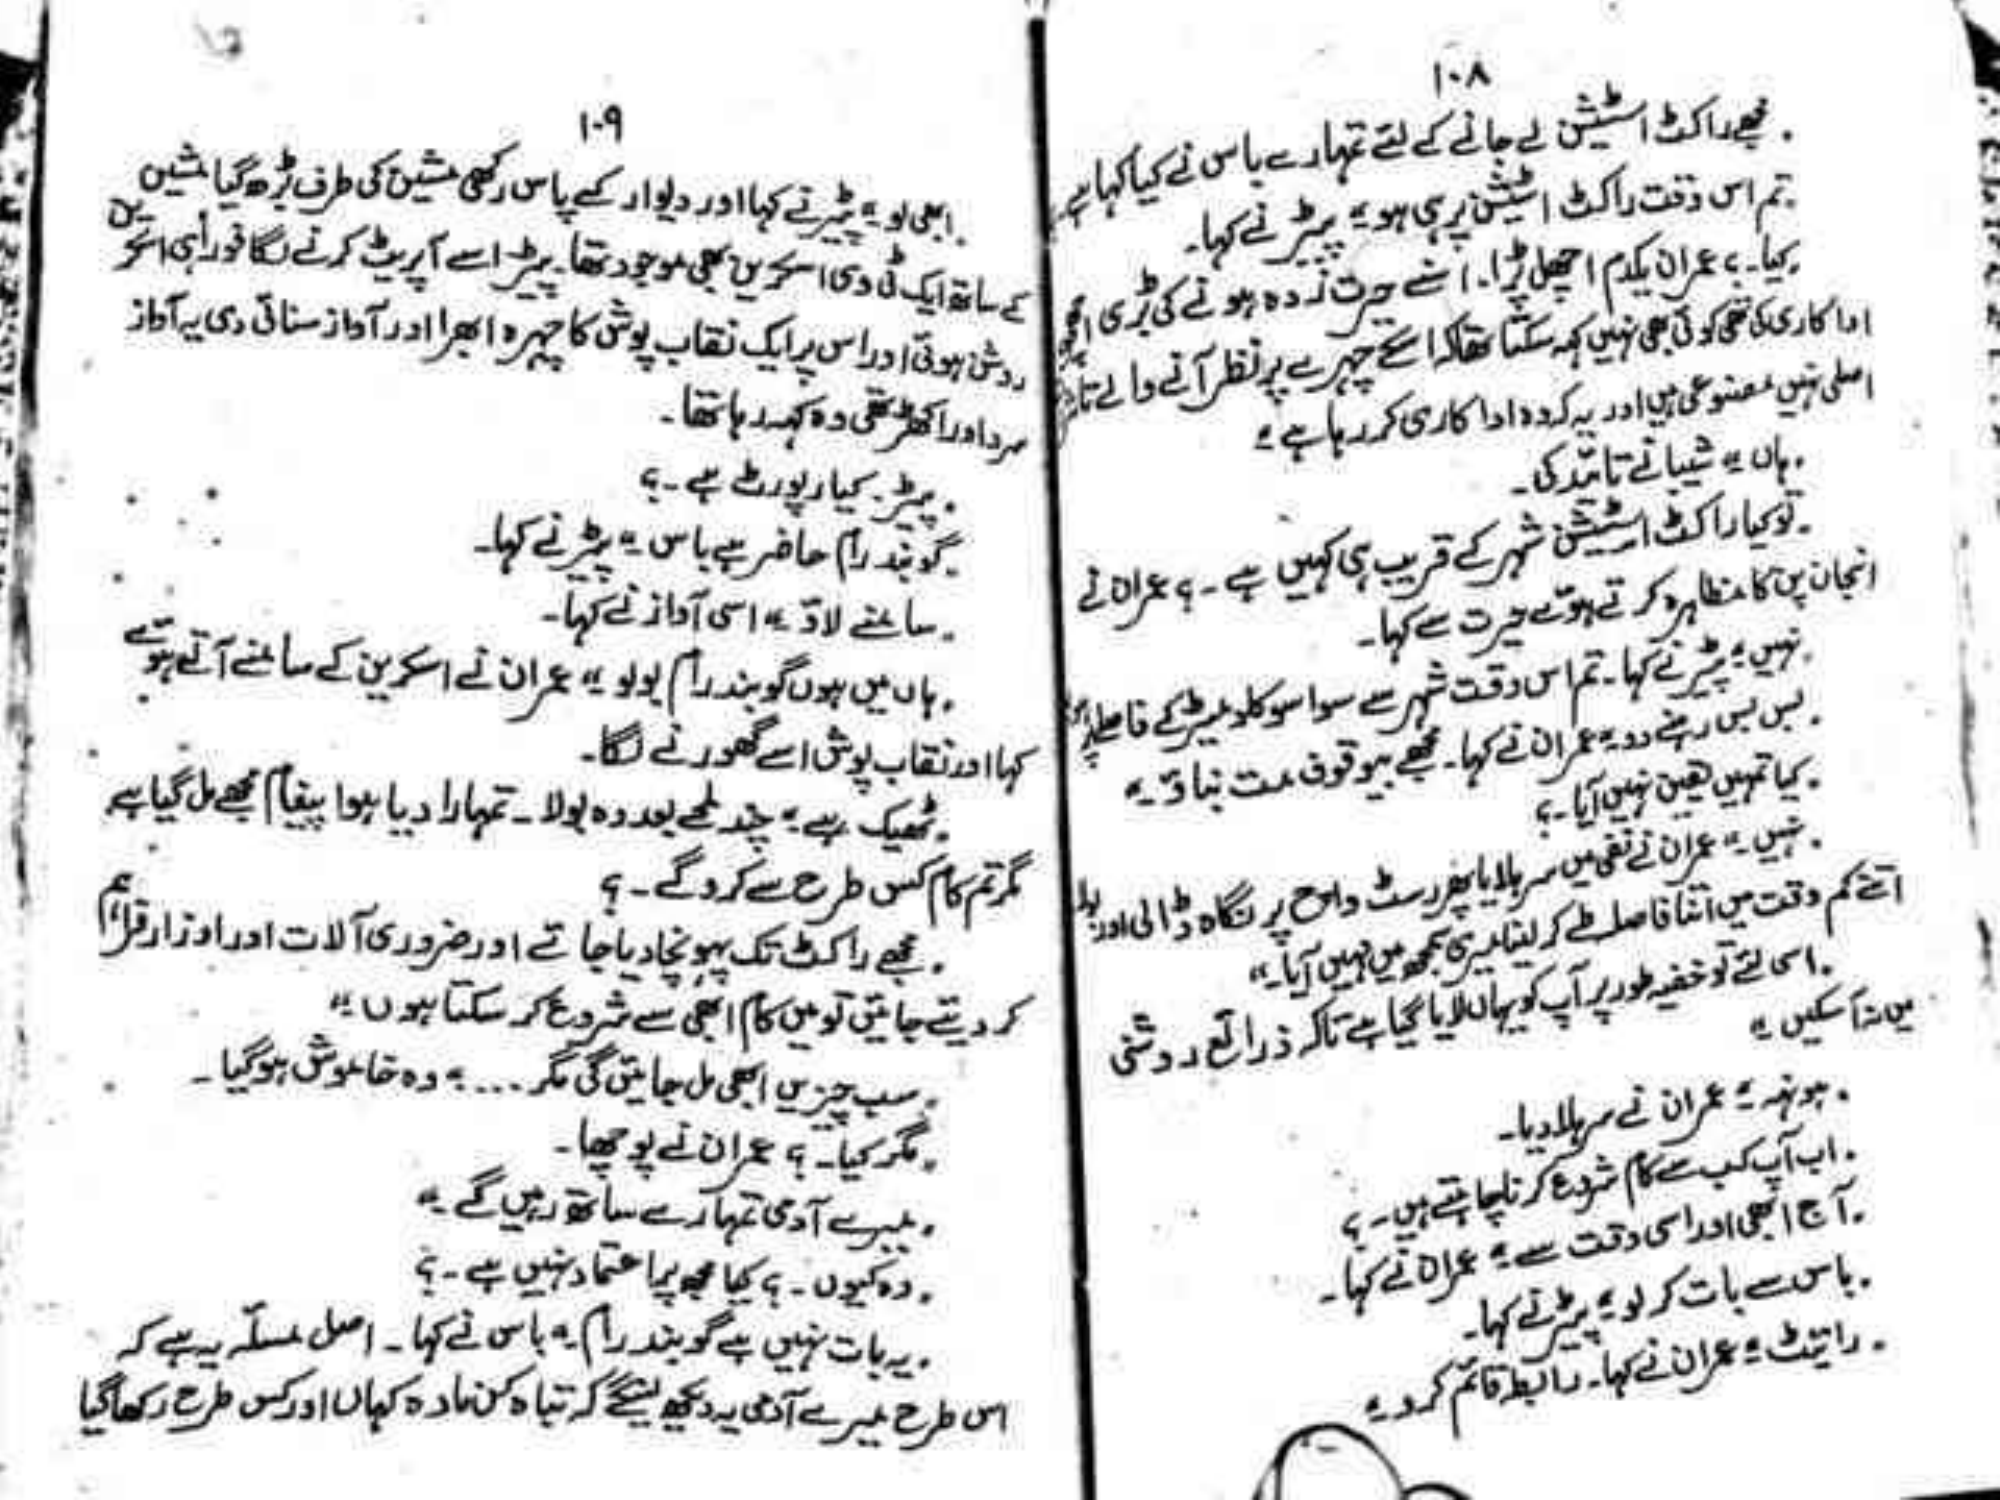 ۱۰۸
"مجھے راکٹ اسٹیشن لے جانے کے لئے تمہارے باس نے کیا کہا ہے
"تم اس وقت راکٹ اسٹیشن پر ہی ہو" پیٹر نے کہا۔
"کیا۔؟ عمران یکدم اچھل پڑا۔ اسنے حیرت زدہ ہونے کی بڑی اچھی
اداکاری کی تھی کوئی بھی نہیں کہہ سکتا تھا کہ اسکے چہرے پر نظر آنے والے
اصلی نہیں مصنوعی ہیں اور یہ کہ وہ اداکاری کر رہا ہے"
"ہاں" شیبا نے تائید کی۔
"تو کیا راکٹ اسٹیشن شہر کے قریب ہی کہیں ہے۔؟ عمران نے
انجان پن کا مظاہرہ کرتے ہوئے حیرت سے کہا۔
"نہیں" پیٹر نے کہا۔ تم اس وقت شہر سے سوا سو کلو میٹر کے فاصلے پر
"بس بس رہنے دو" عمران نے کہا۔ مجھے بیوقوف مت بناؤ"
"کیا تمہیں یقین نہیں آیا۔؟
"نہیں" عمران نے نفی میں سر ہلایا پھر رسٹ واچ پر نگاہ ڈالی اور بولا
اتنے کم وقت میں اتنا فاصلہ طے کر لینا میری سمجھ میں نہیں آیا۔"
"اسی لئے تو خفیہ طور پر آپ کو یہاں لایا گیا ہے تاکہ ذرائع روشنی
میں نہ آسکیں"
"ہونہہ" عمران نے سر ہلا دیا۔
"اب آپ کب سے کام شروع کرنا چاہتے ہیں۔؟
"آج ابھی اور اسی وقت سے" عمران نے کہا۔
"باس سے بات کر لو" پیٹر نے کہا۔
"رائیٹ" عمران نے کہا۔ رابطہ قائم کرو"
۱۰۹
"ابھی لو" پیٹر نے کہا اور دیوار کے پاس رکھی مشین کی طرف بڑھ گیا مشین
کے ساتھ ایک ٹی وی اسکرین بھی موجود تھا۔ پیٹر اسے آپریٹ کرنے لگا فوراً ہی اسکرین
روشن ہوئی اور اس پر ایک نقاب پوش کا چہرہ ابھرا اور آواز سنائی دی یہ آواز
سرد اور اکھڑ تھی وہ کہہ رہا تھا۔
"پیٹر۔ کیا رپورٹ ہے۔؟
"گوبند رام حاضر ہے باس" پیٹر نے کہا۔
"سامنے لاؤ" اسی آواز نے کہا۔
"ہاں میں ہوں گوبند رام بولو" عمران نے اسکرین کے سامنے آتے ہوئے
کہا اور نقاب پوش اسے گھورنے لگا۔
"ٹھیک ہے" چند لمحے بعد وہ بولا۔ تمہارا دیا ہوا پیغام مجھے مل گیا ہے
مگر تم کام کس طرح سے کرو گے۔؟
"مجھے راکٹ تک پہونچا دیا جائے اور ضروری آلات اور اوزار فراہم
کر دیئے جائیں تو میں کام ابھی سے شروع کر سکتا ہوں"
"سب چیزیں ابھی مل جائیں گی مگر ...." وہ خاموش ہو گیا۔
"مگر کیا۔؟ عمران نے پوچھا۔
"میرے آدمی تمہارے ساتھ رہیں گے۔"
"وہ کیوں۔؟ کیا مجھ پر اعتماد نہیں ہے۔؟
"یہ بات نہیں ہے گوبند رام" باس نے کہا۔ اصل مسئلہ یہ ہے کہ
اس طرح میرے آدمی یہ دیکھ لینگے کہ تباہ کن مادہ کہاں اور کس طرح رکھا گیا